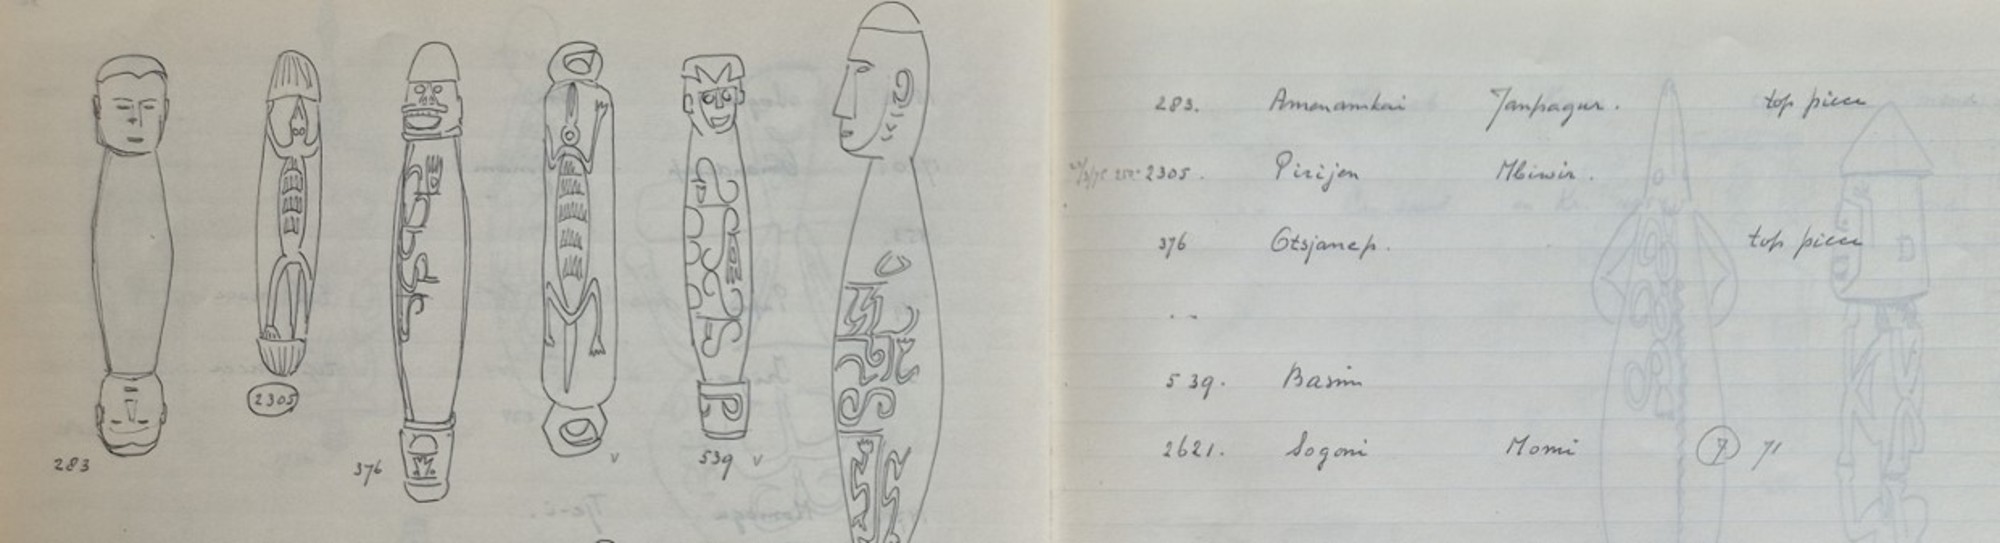 2305
283
376
v
539 v
283. Amenamkai Janpagur. top piece
2305. Pirijen Mbiwir.
376 Otsjanep. top piece
. .
539. Basim
2621. Sogoni Momi 7 71